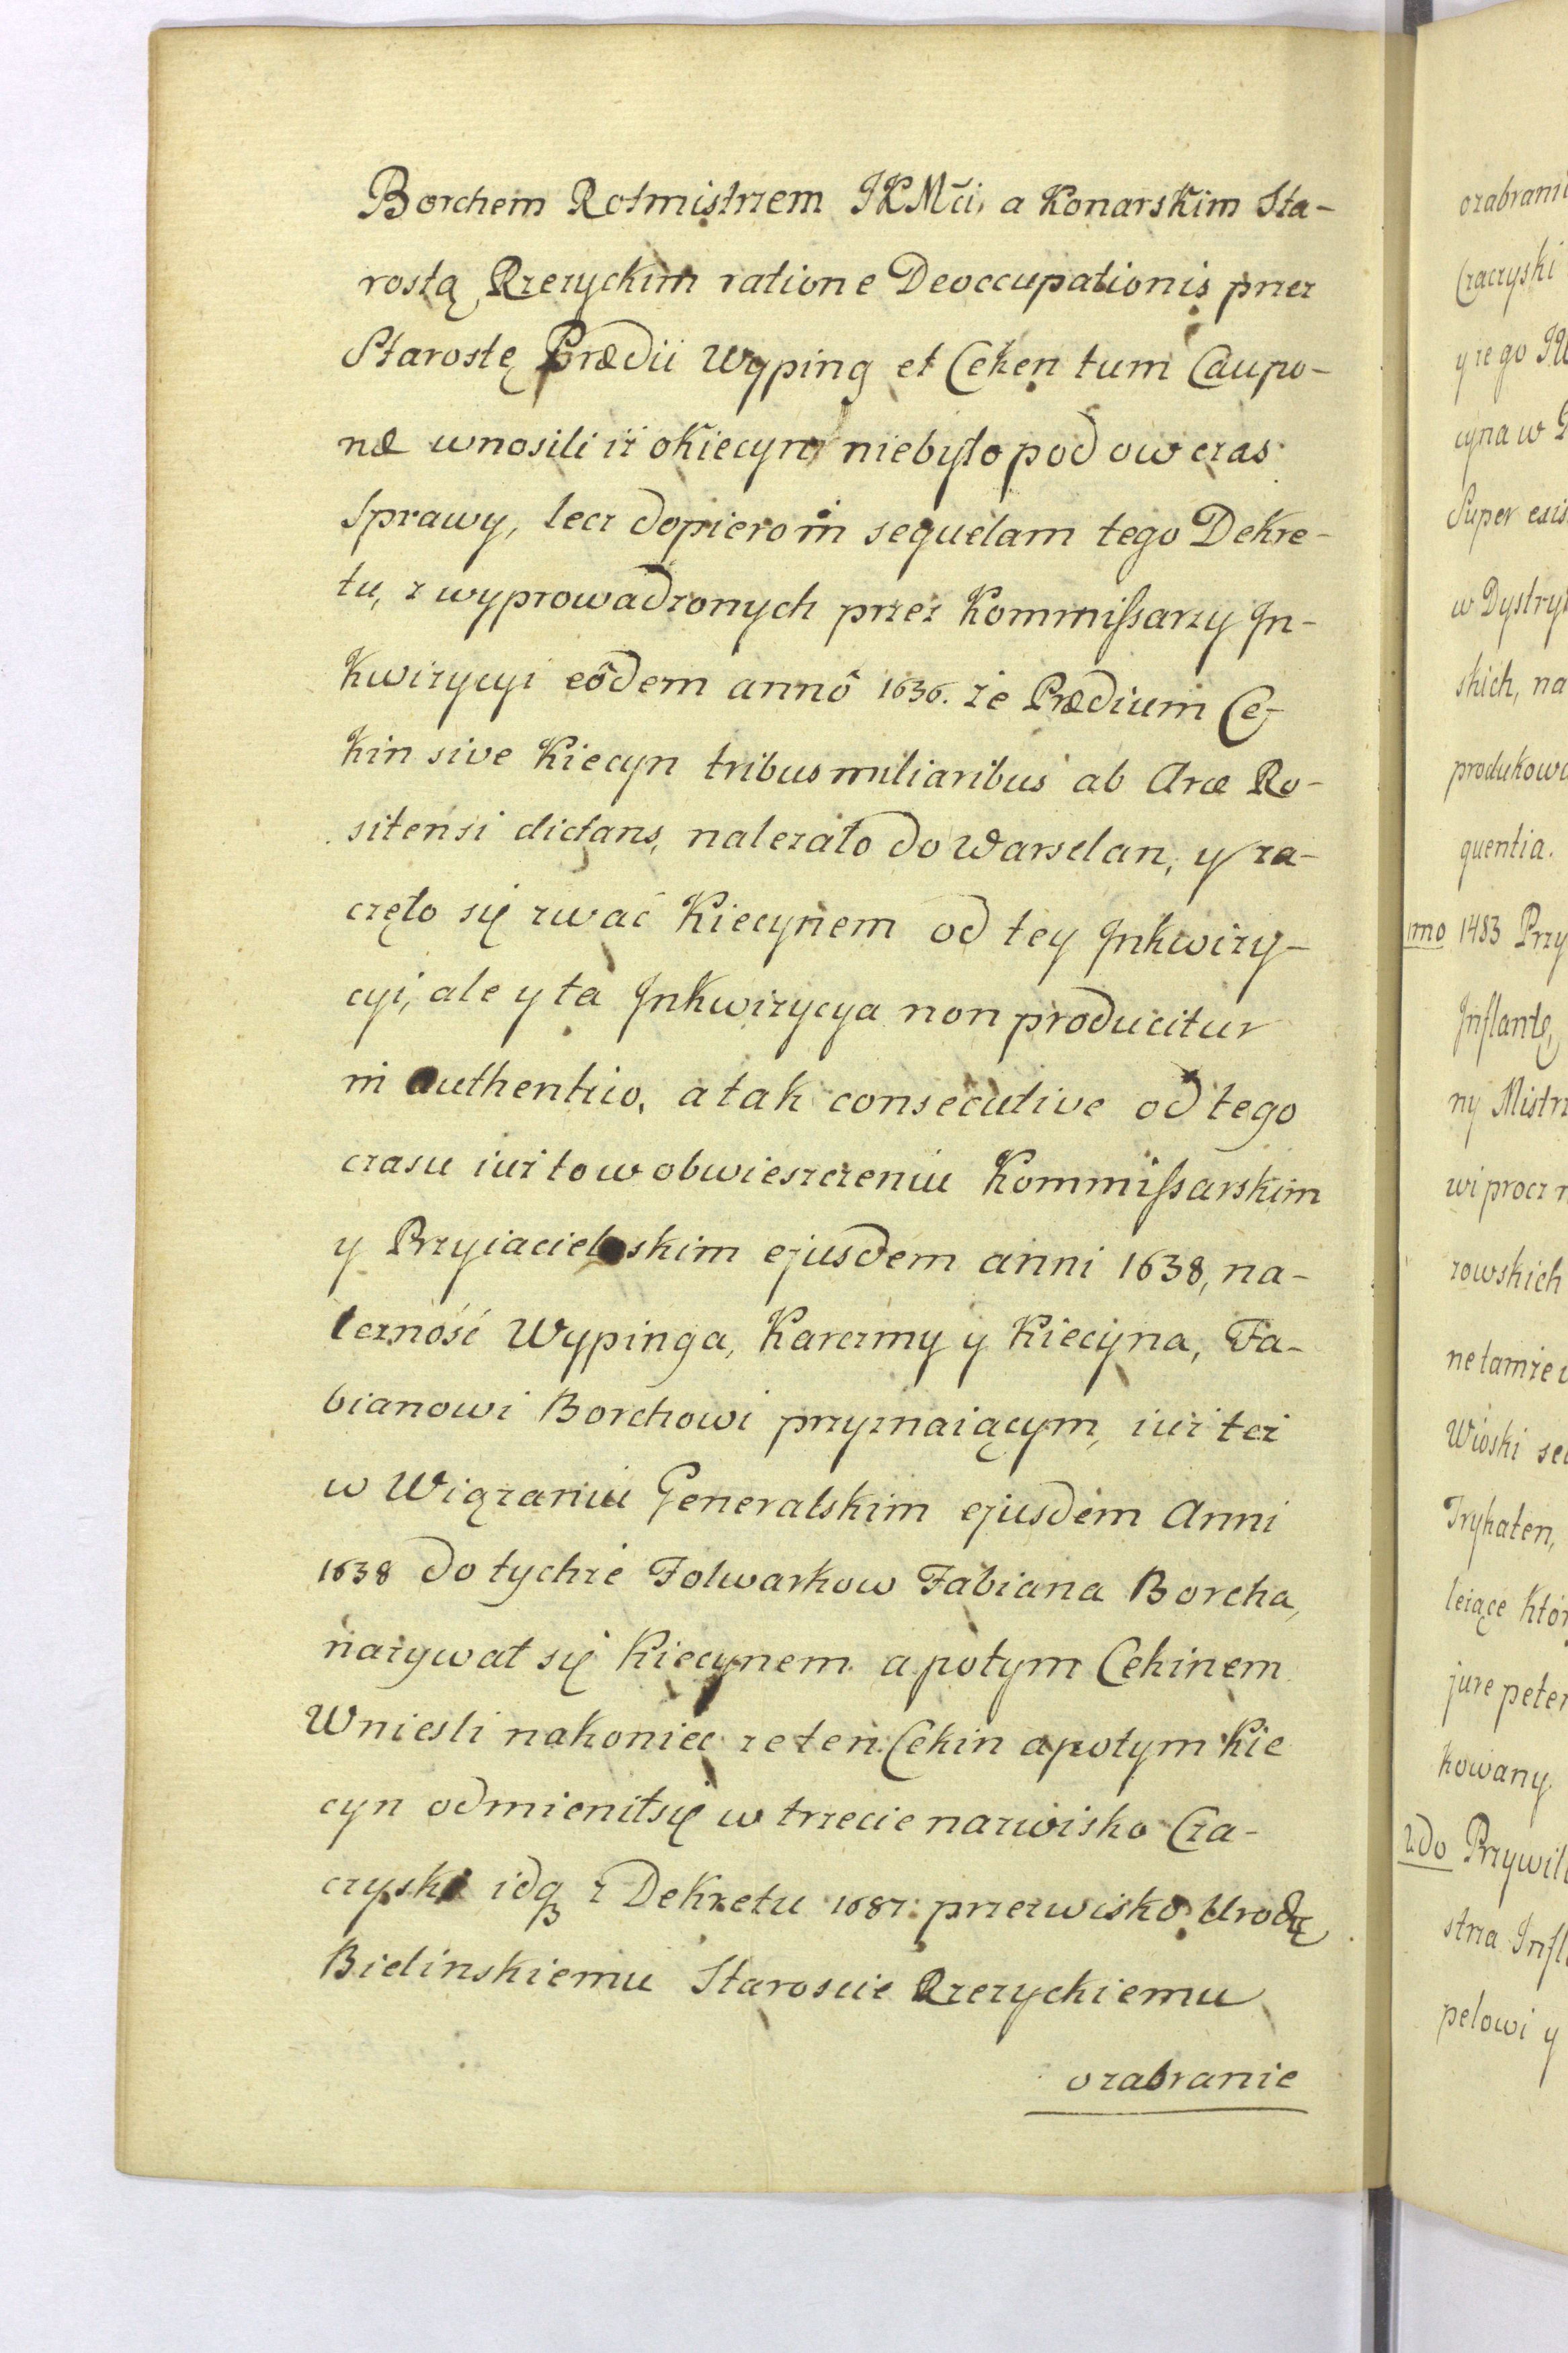 Borchem Rotmistrzem JKMći, a Konarskim Sta-
rostą Rzezyckim ratione Deoccupationis przez
Starostę Prædii Wyping et Ceken tum Caupo-
næ wnosili iż o Kiecyn niebyło pod ow czas
Sprawy, lecz dopiero in sequelam tego Dekre-
tu, z wyprowadzonych przez Kommissarzy In-
kwizycyi eôdem annô 1636. że Prædium Ce-
kin sive Kiecyn tribus miliaribus ab Arce Ro-
sitensi distans, należało do Warselan, y za-
częło się zwać Kiecynem od tey Inkwizy-
cyi, ale y ta Inkwizycya non producitur
in authentico, a tak consecutive od tego
czasu iuż to w obwieszczeniu Kommissarskim
y Przyiacielskim ejusdem anni 1638, na-
leżność Wypinga, Karczmy y Kiecyna, Fa-
bianowi Borchowi przyznaiącym, iuż też
w Wiązaniu Generalskim ejusdem Anni
1638 do tychże Folwarkow Fabiana Borcha,
nazywał się Kiecynem a potym Cekinem
Wniesli nakoniec ze ten Cekin a potym Kie
cyn odmienił się w trzecie nazwisko Cza-
czyski idq z Dekretu 1687. przezwisko Urodz
Bielinskiemu Staroscie Rzezyckiemu
o zabranie
o zabranie
Czaczyski
y ze go
cyna w
Super
w Dystry
skich, na
produkowa
quentia.
1mo 1483 Przy
Inflantę,
ny Mistrz
wi procz
rowskich
ne tamże
Wioski
Trykaten,
leżące któr
jure peter
kowany.
2do Przywil
strza Infl
pelowi y